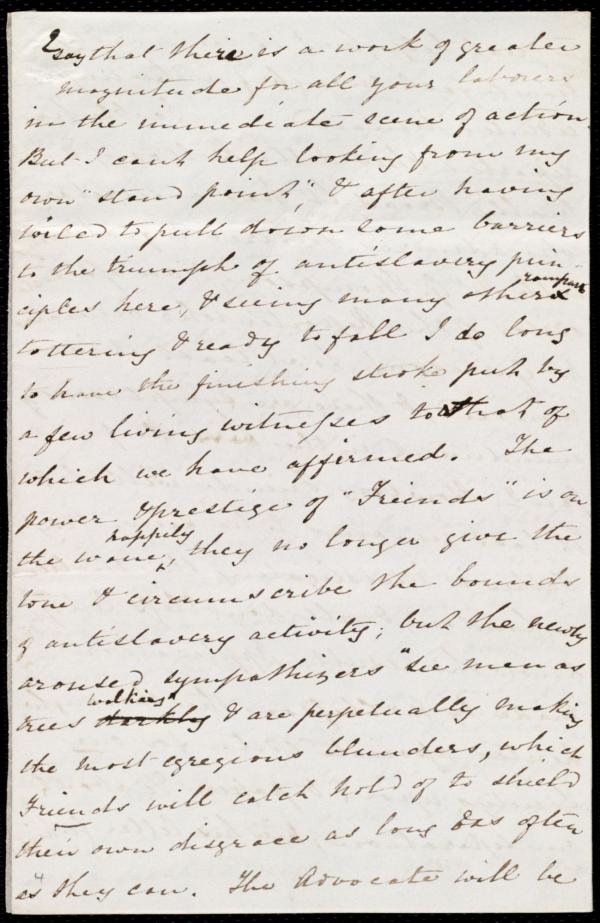 2
say that there is a work of greater
magnitude for all your laborers
in the immediate scene of action.
But I cant help looking from my
own "stand point", & after having
toiled to pull down some barriers
to the triumph of antislavery prin-
ciples here, & seeing many other ramparts
tottering & ready to fall I do long
to have the finishing stroke put by
a few living witnesses to that of
which we have affirmed. The
power & prestige of "Friends" is on
the wane, happily they no longer give the
tone & circumscribe the bounds
of antislavery activity; but the newly
aroused sympathizers "see men as
trees walking" darkly & are perpetually making
the most egregious blunders, which
Friends will catch hold of to shield
their own disgrace as long & as often
as they can. The Advocate will be
4